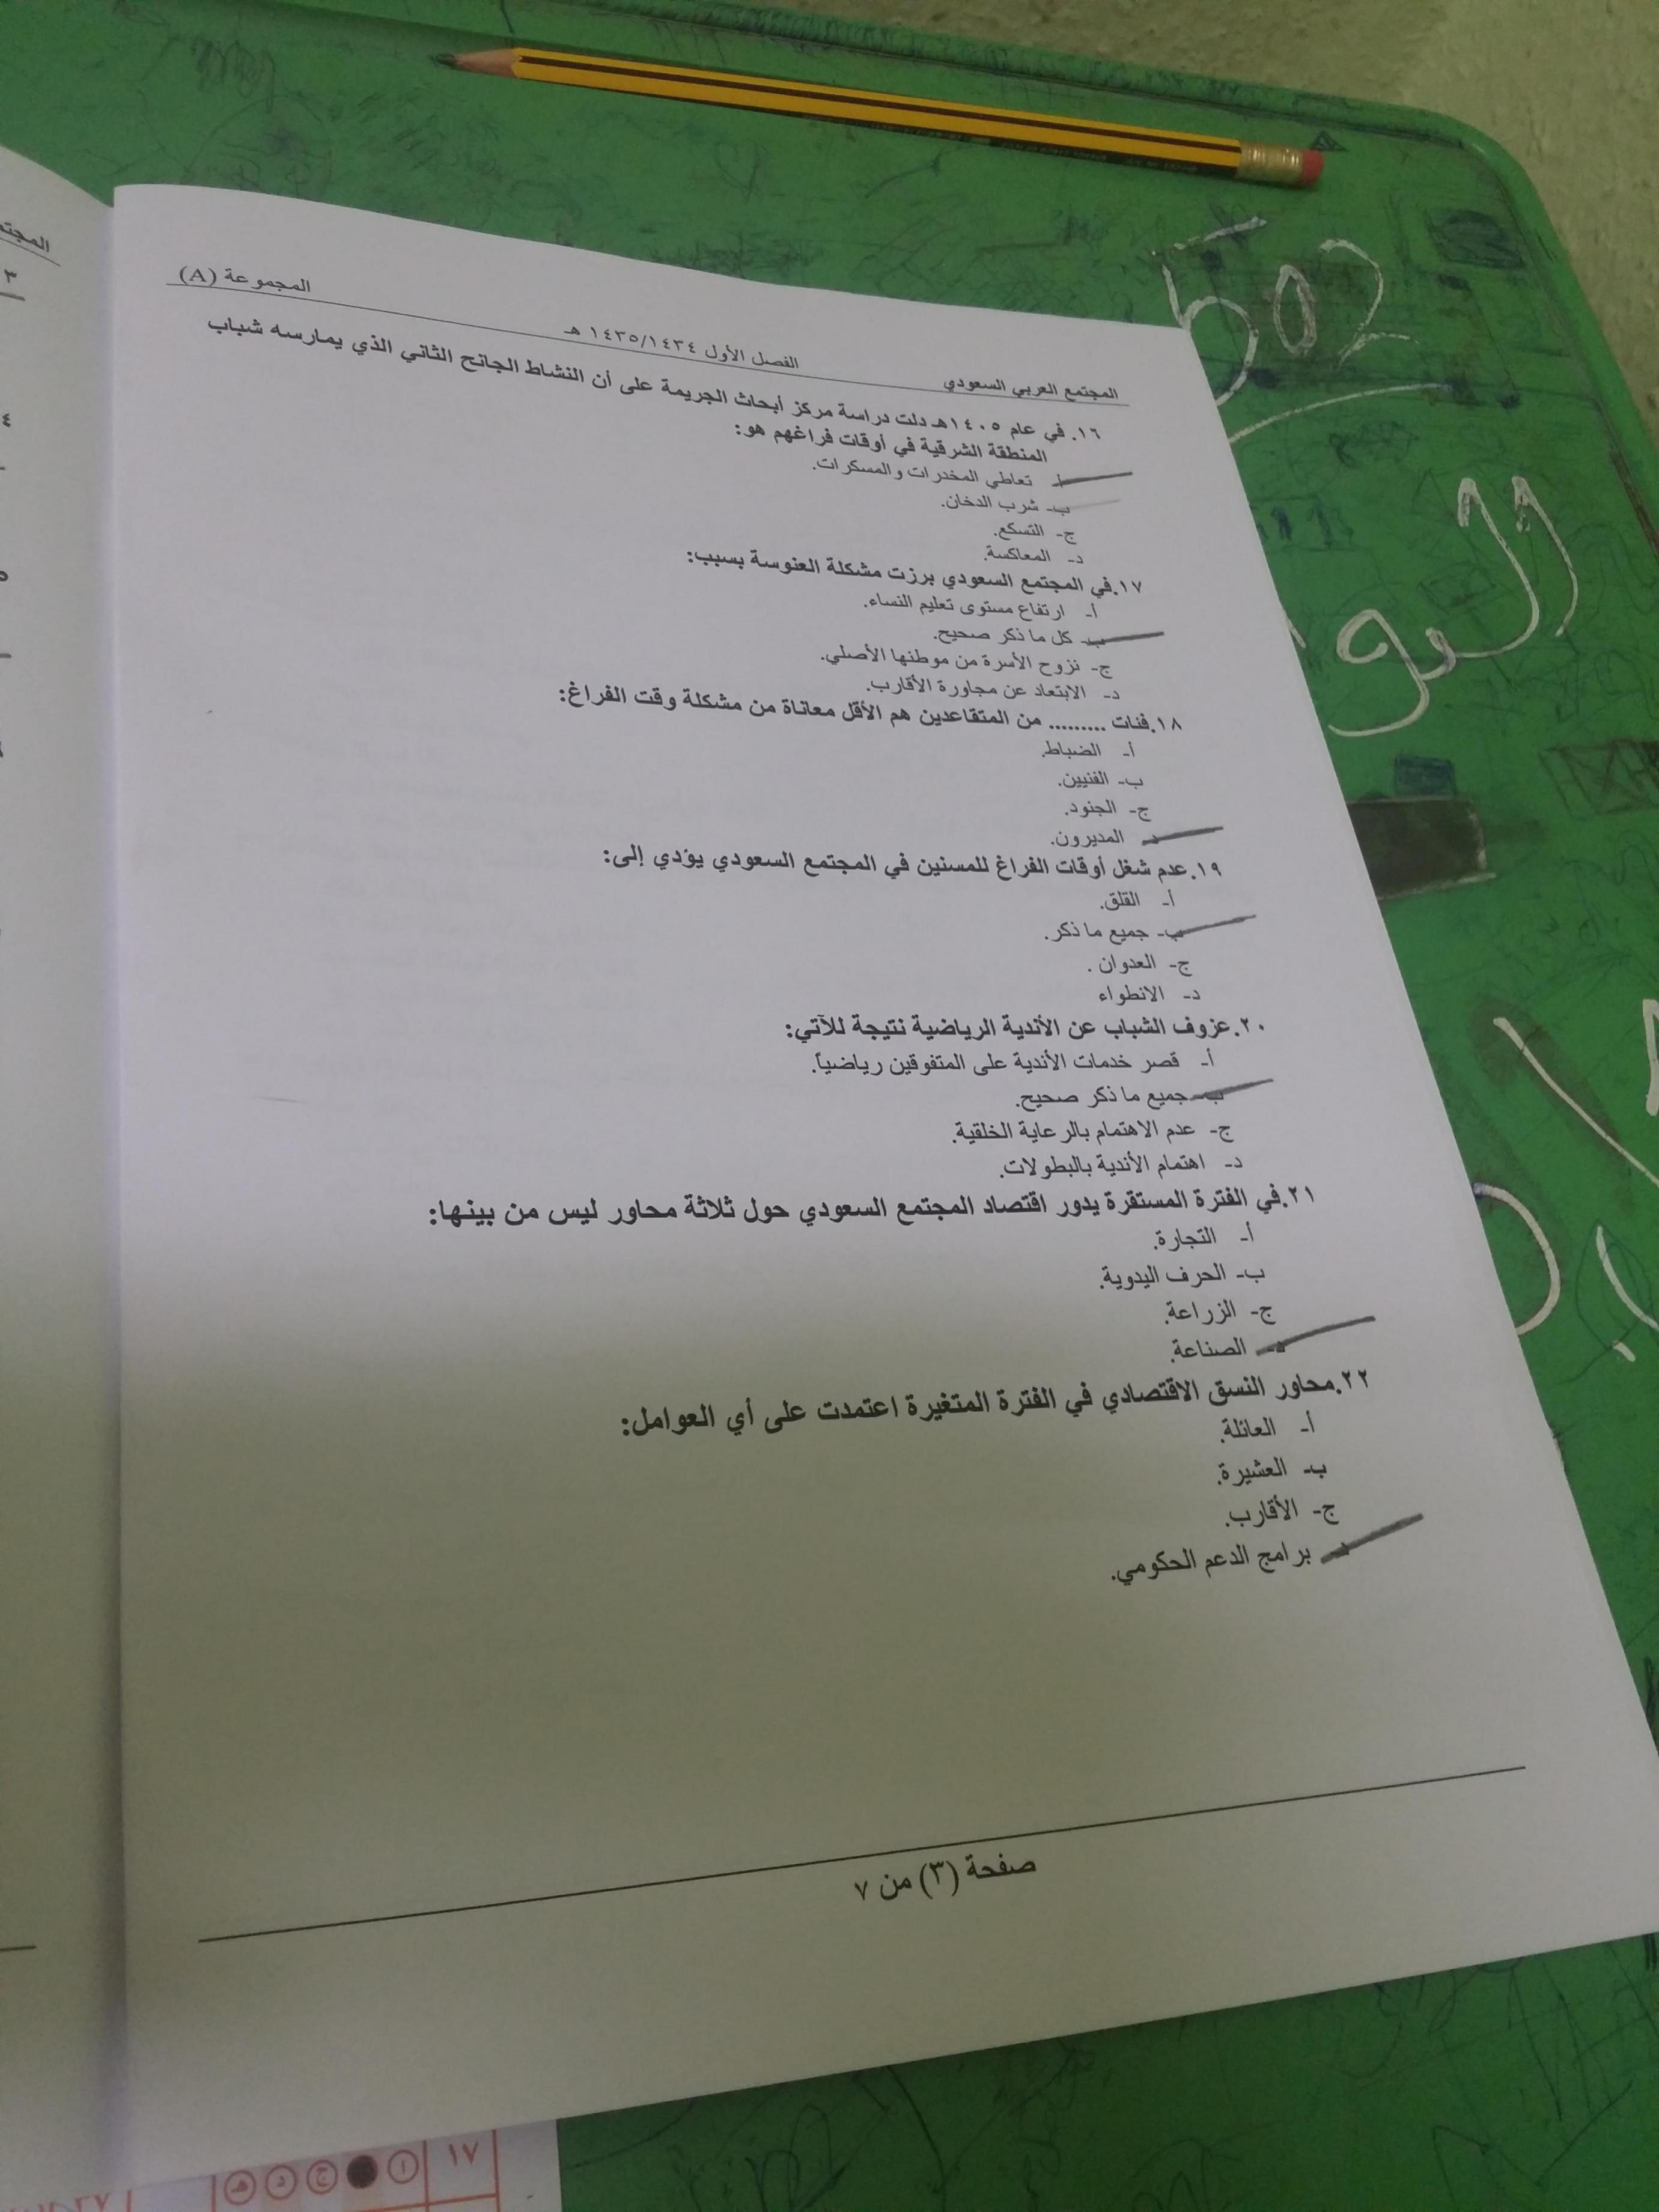 المجتمع العربي السعودي الفصل الأول ١٤٣٥/١٤٣٤ هـ المجموعة (A)
١٦. في عام ١٤٠٥هـ دلت دراسة مركز أبحاث الجريمة على أن النشاط الجانح الثاني الذي يمارسه شباب
المنطقة الشرقية في أوقات فراغهم هو:
أ- تعاطي المخدرات والمسكرات.
ب- شرب الدخان.
ج- التسكع.
د- المعاكسة.
١٧.في المجتمع السعودي برزت مشكلة العنوسة بسبب:
أ- ارتفاع مستوى تعليم النساء.
ب- كل ما ذكر صحيح.
ج- نزوح الأسرة من موطنها الأصلي.
د- الابتعاد عن مجاورة الأقارب.
١٨.فئات ......... من المتقاعدين هم الأقل معاناة من مشكلة وقت الفراغ:
أ- الضباط.
ب- الفنيين.
ج- الجنود.
د- المديرون.
١٩.عدم شغل أوقات الفراغ للمسنين في المجتمع السعودي يؤدي إلى:
أ- القلق.
ب- جميع ما ذكر.
ج- العدوان .
د- الانطواء
٢٠.عزوف الشباب عن الأندية الرياضية نتيجة للآتي:
أ- قصر خدمات الأندية على المتفوقين رياضياً.
ب- جميع ما ذكر صحيح.
ج- عدم الاهتمام بالرعاية الخلقية.
د- اهتمام الأندية بالبطولات.
٢١.في الفترة المستقرة يدور اقتصاد المجتمع السعودي حول ثلاثة محاور ليس من بينها:
أ- التجارة.
ب- الحرف اليدوية.
ج- الزراعة.
د- الصناعة.
٢٢.محاور النسق الاقتصادي في الفترة المتغيرة اعتمدت على أي العوامل:
أ- العائلة.
ب- العشيرة.
ج- الأقارب.
د- برامج الدعم الحكومي.
صفحة (٣) من ٧
١٧ أ ج د هـ
502